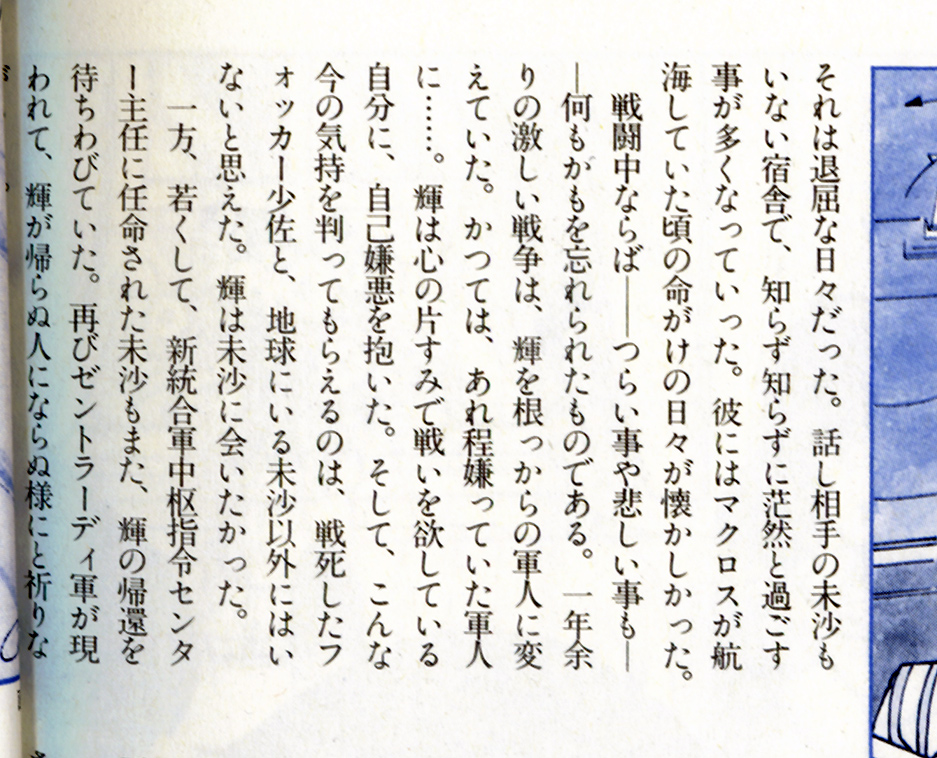 それは退屈な日々だった。話し相手の未沙も
いない宿舎で、知らず知らずに茫然と過ごす
事が多くなっていった。彼にはマクロスが航
海していた頃の命がけの日々が懐かしかった。
　戦闘中ならば――つらい事や悲しい事も―
―何もかもを忘れられたものである。一年余
りの激しい戦争は、輝を根っからの軍人に変
えていた。かつては、あれ程嫌っていた軍人
に……。輝は心の片すみで戦いを欲している
自分に、自己嫌悪を抱いた。そして、こんな
今の気持を判ってもらえるのは、戦死したフ
ォッカー少佐と、地球にいる未沙以外にはい
ないと思えた。輝は未沙に会いたかった。
　一方、若くして、新統合軍中枢指令センタ
ー主任に任命された未沙もまた、輝の帰還を
待ちわびていた。再びゼントラーディ軍が現
われて、輝が帰らぬ人にならぬ様にと祈りな